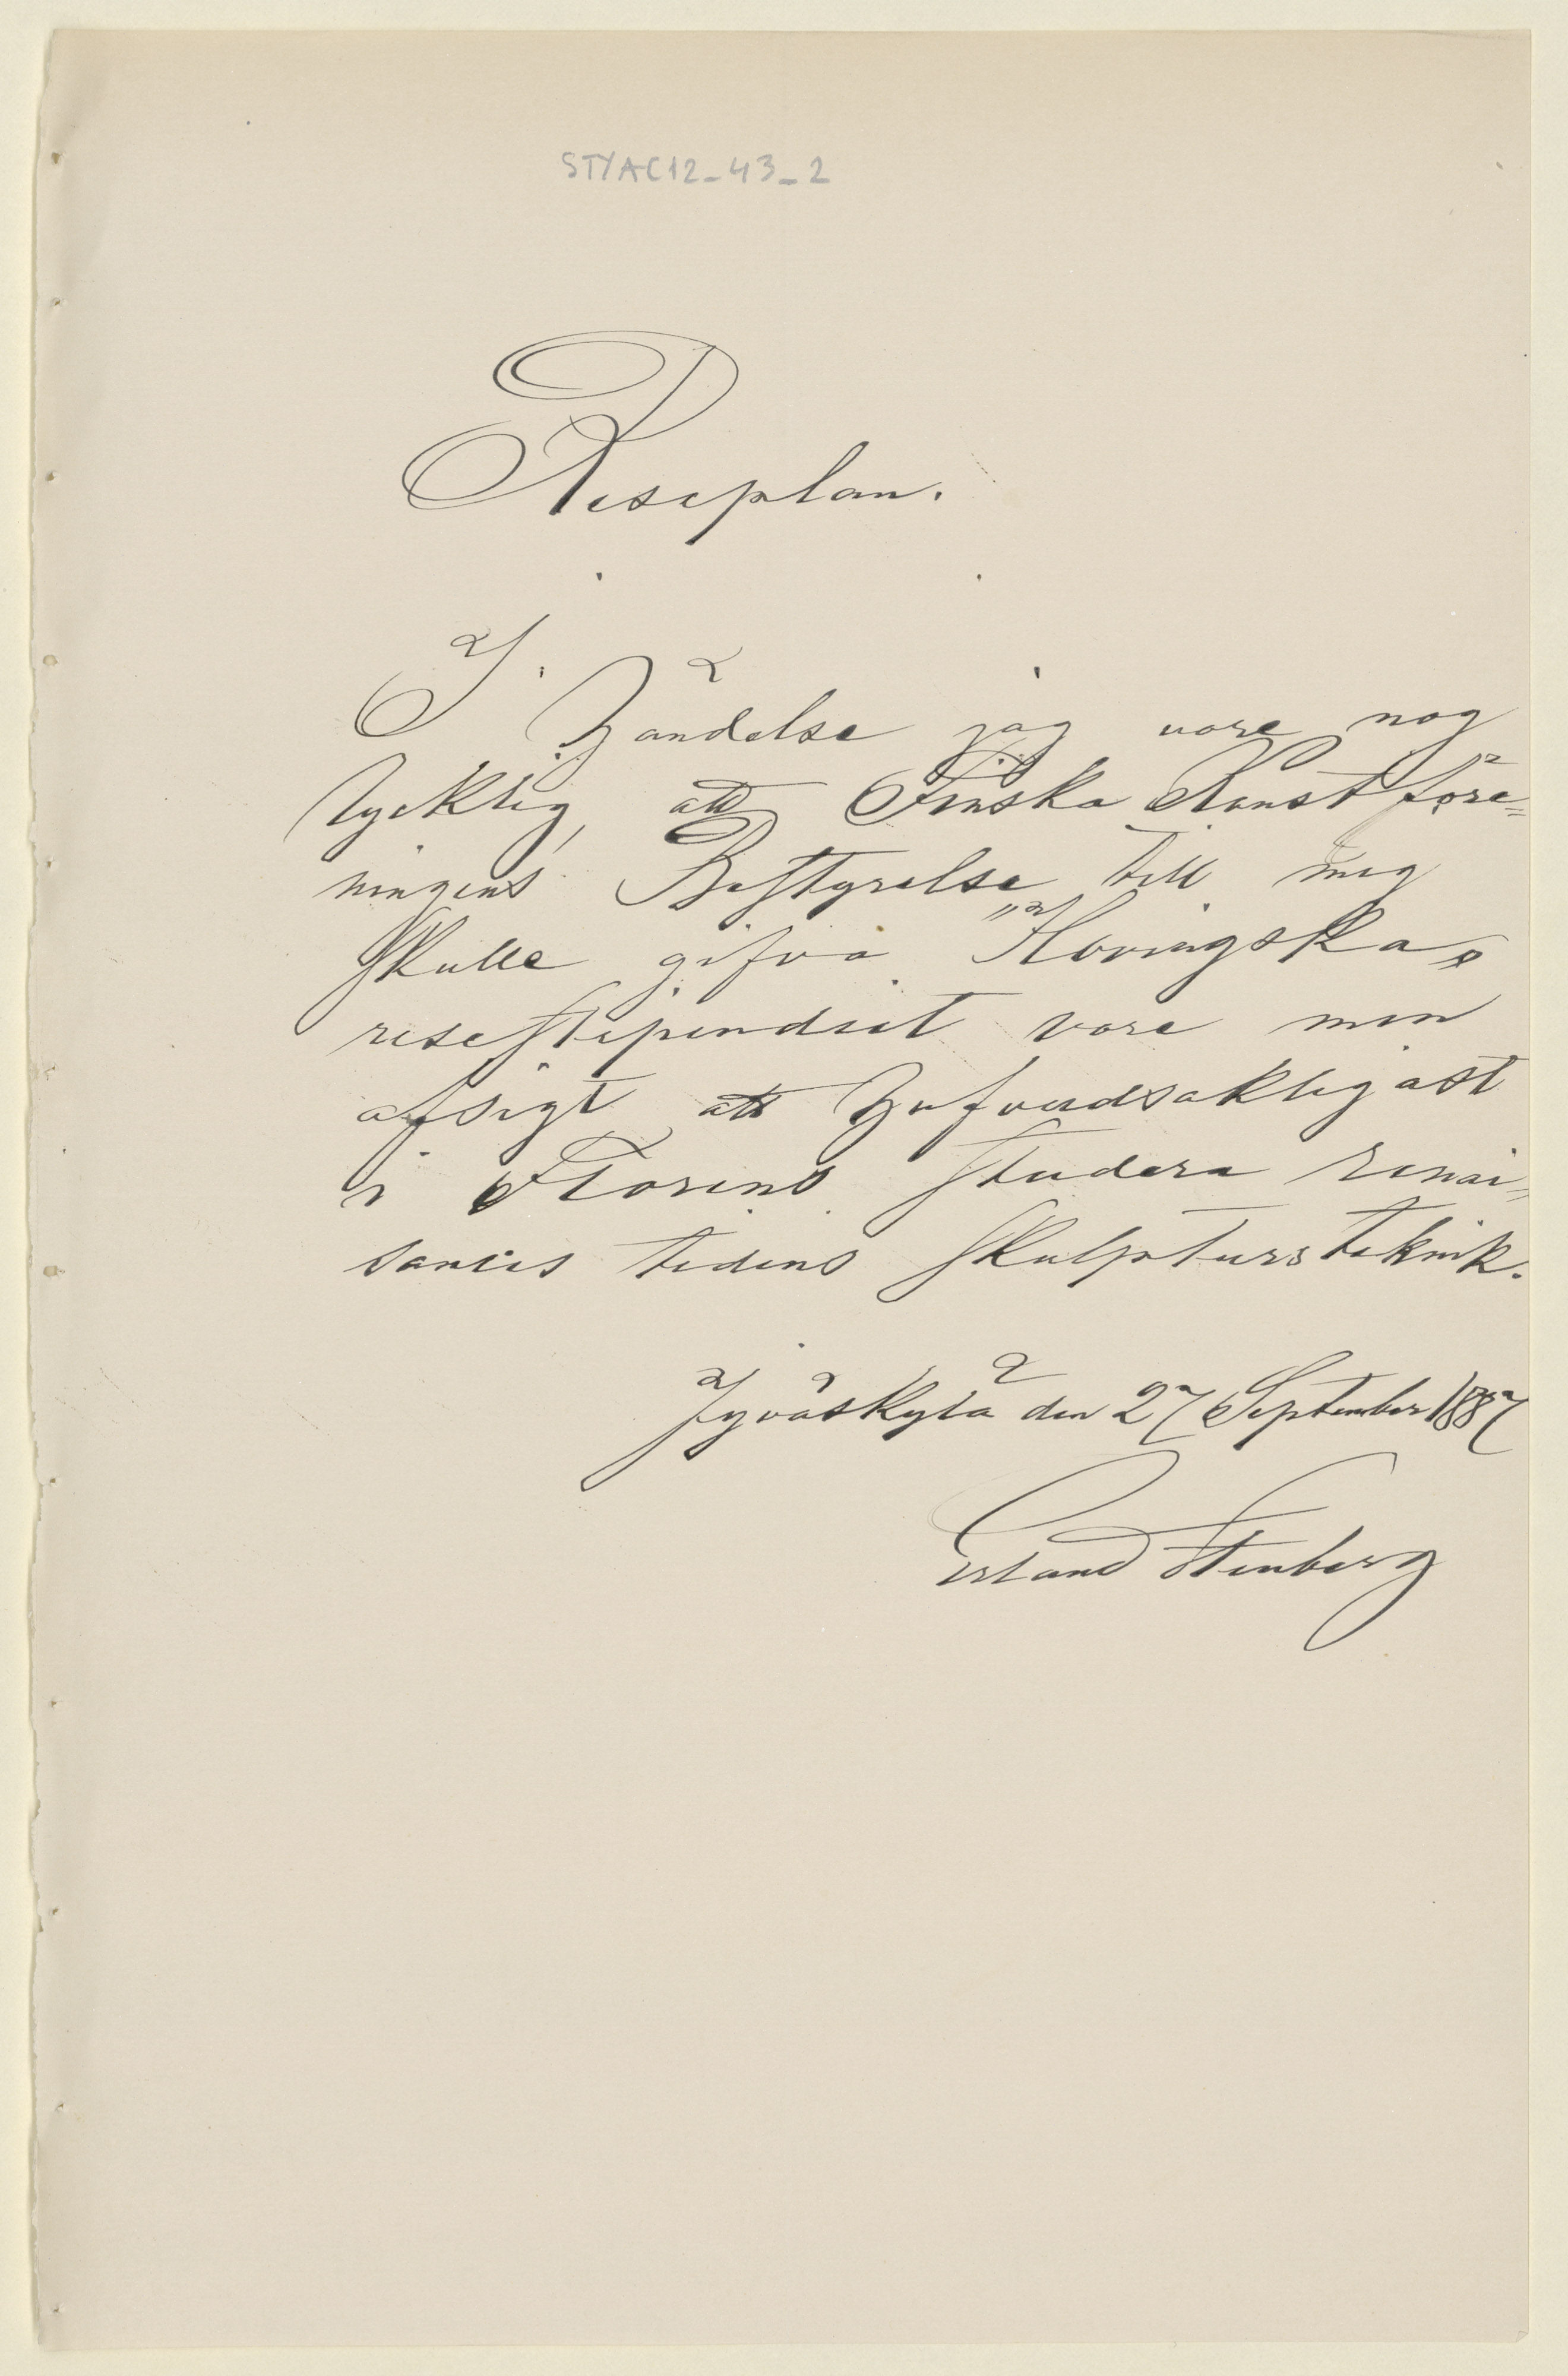 STYAC12_43_2
Reseplan.
I händelse jag vore nog
lycklig, att Finska Konstföre=
ningens Bestyrelse till mig
skulle gifva "Hovingska"
resestipendiet vore min
afsigt att hufvudsakligast
i Florens studera renai=
sances tidens skulpturs teknik.
Jyväskylä den 27 September 1887
Erland Stenberg